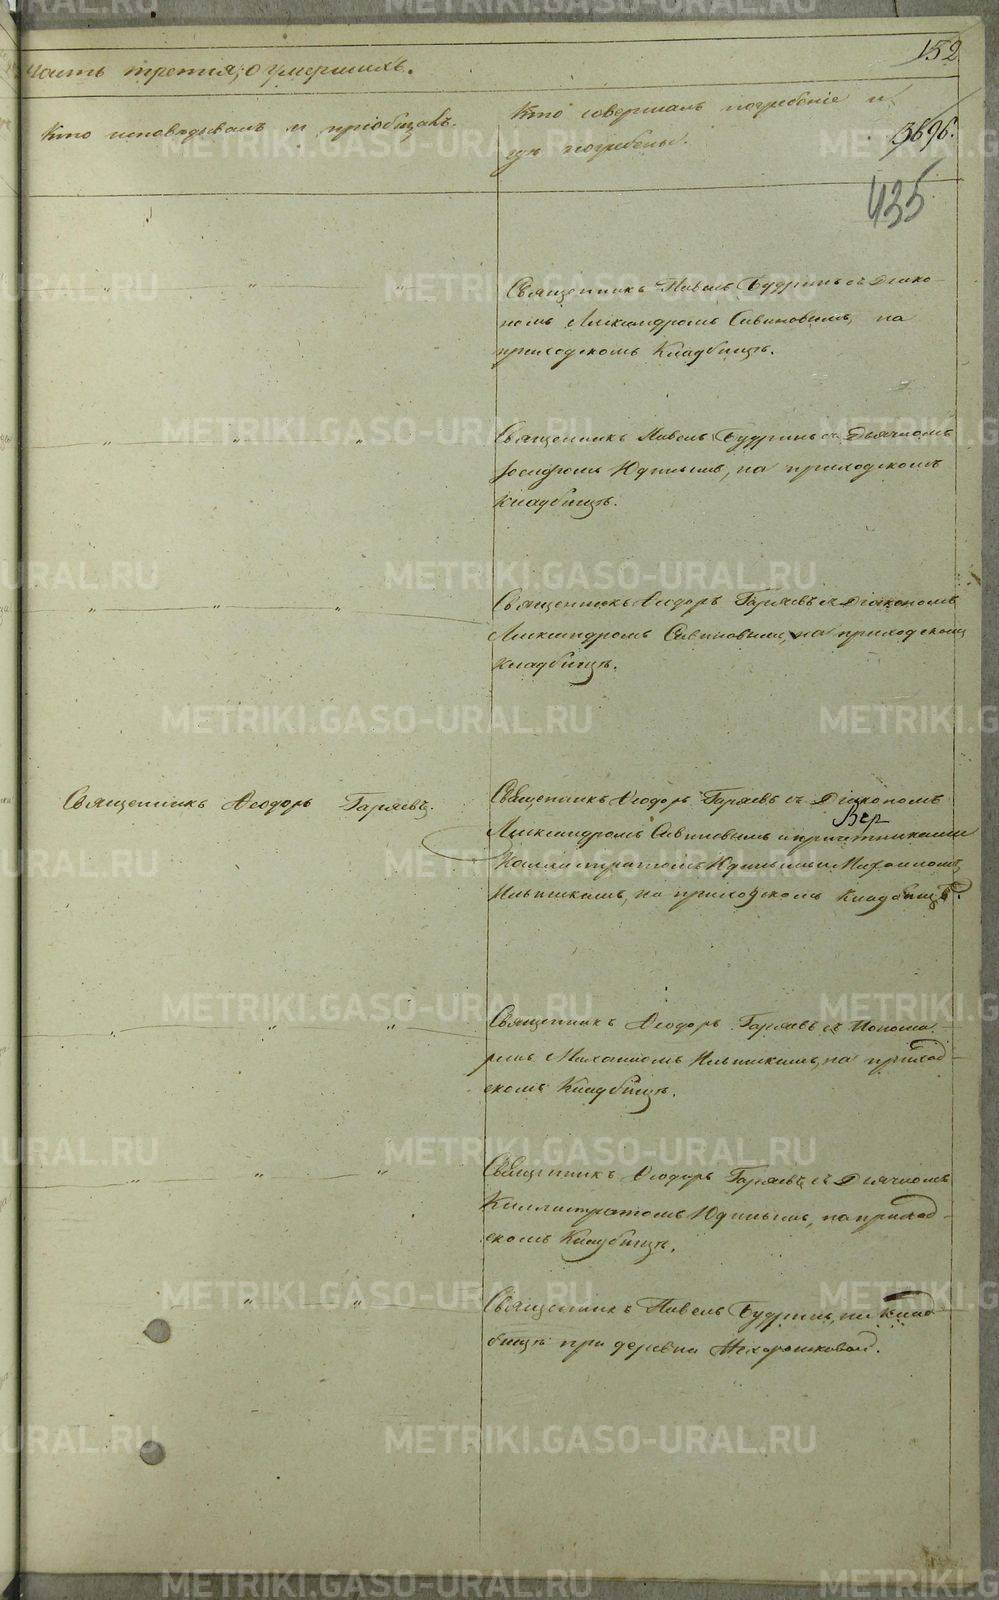 152
Часть третія, о умершихъ.
Кто исповѣдывалъ и пріобщалъ.
Кто совершалъ погребеніе и
гдѣ погребены.
3696.
435
Священникъ Павелъ Будринъ съ Діако-
номъ Александромъ Савиновымъ, на
приходскомъ Кладбищѣ.
Священникъ Павелъ Будринъ съ Дьячкомъ
Юдинымъ, на приходскомъ
Кладбищѣ.
Священникъ Ѳеодоръ Гаряевъ съ Діакономъ
Александромъ Савиновымъ, на приходскомъ
Кладбищѣ.
Священникъ Ѳеодоръ Гаряевъ.
Священникъ Ѳеодоръ Гаряевъ съ Діакономъ
Александромъ Савиновымъ и причетниками
Каллистратомъ Юдинымъ и Михаиломъ
Ильинскимъ, на приходскомъ Кладбищѣ.
Священникъ Ѳеодоръ Гаряевъ съ Понома-
ремъ Михаиломъ Ильинскимъ, на приход-
скомъ Кладбищѣ.
Священникъ Ѳеодоръ Гаряевъ съ Дьячкомъ
Каллистратомъ Юдинымъ, на приход-
скомъ Кладбищѣ.
Священникъ Павелъ Будринъ, на Клад-
бищѣ при деревнѣ Нехорошковой.
METRIKI.GASO-URAL.RU